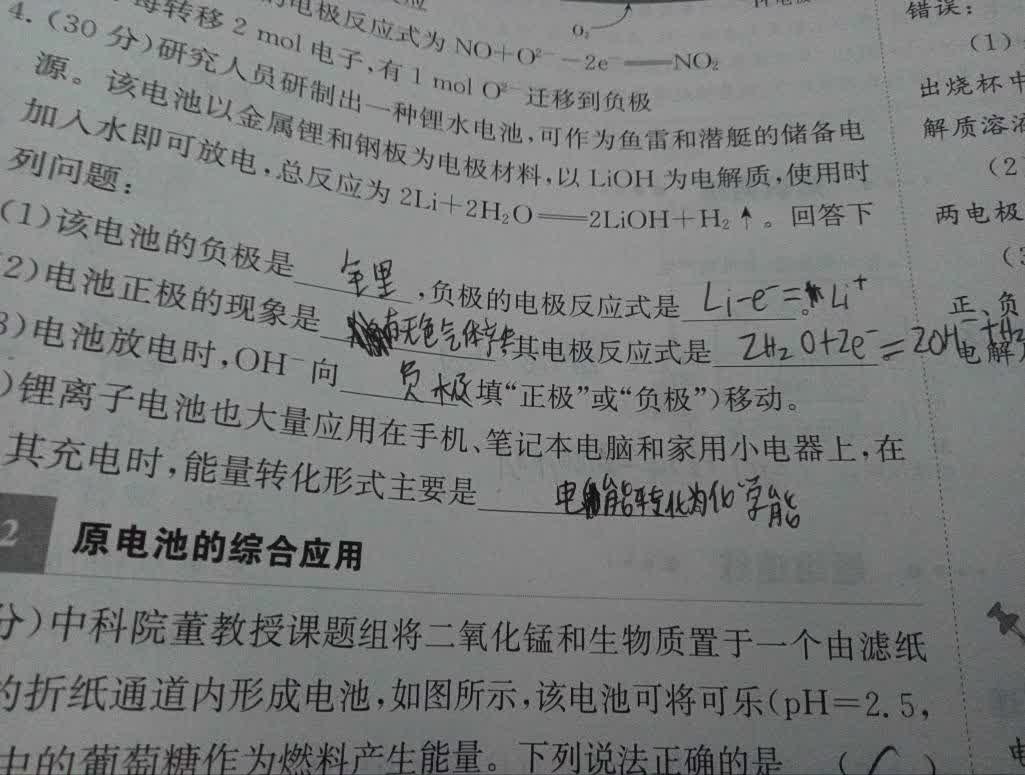 的电极反应式为NO+O²⁻-2e⁻══NO₂
每转移2 mol电子,有1 mol O²⁻迁移到负极
4.(30分)研究人员研制出一种锂水电池,可作为鱼雷和潜艇的储备电
源。该电池以金属锂和钢板为电极材料,以LiOH为电解质,使用时
加入水即可放电,总反应为2Li+2H₂O══2LiOH+H₂↑。回答下
列问题:
(1)该电池的负极是 锂 ,负极的电极反应式是 Li-e⁻=Li⁺ 。
2)电池正极的现象是 有无色气体产生 其电极反应式是 2H₂O+2e⁻=2OH⁻+H₂
3)电池放电时,OH⁻向 负极 填“正极”或“负极”)移动。
)锂离子电池也大量应用在手机、笔记本电脑和家用小电器上,在
其充电时,能量转化形式主要是 电能转化为化学能
2 原电池的综合应用
分)中科院董教授课题组将二氧化锰和生物质置于一个由滤纸
的折纸通道内形成电池,如图所示,该电池可将可乐(pH=2.5,
中的葡萄糖作为燃料产生能量。下列说法正确的是 ( )
O₂
错误:
(1)
出烧杯中
解质溶液
(2
两电极
(3
正、负
电解
电